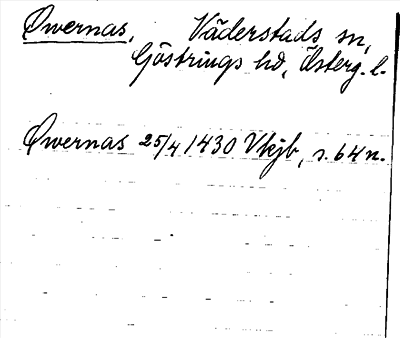 Øwernas, Väderstads sn,
Göstrings hd, Österg. l.
Øwernas 25/4 1430 Vkjb, s. 64 n.